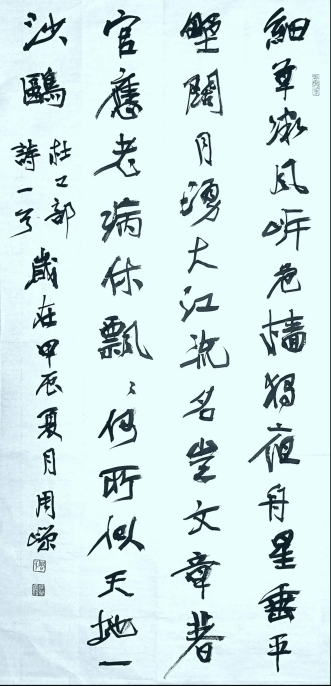 細草微風岸危檣獨夜舟星垂平
野闊月湧大江流名豈文章著
官應老病休飄〻何所似天地一
沙鷗
杜工部
詩一首
歲在甲辰夏月周嶸